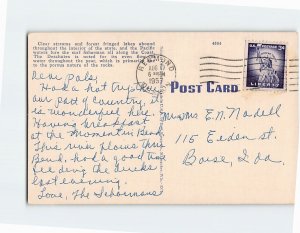 Clear streams and forest fringed lakes abound
throughout the interior of the state, and the Pacific
waters lure the surf fisherman all along the Coast.
The Deschutes is noted for its even flow of
water throughout the year, which is primarily due
to the porous nature of the rocks.
AUG
1957
3¢
LIBERTY
POST CARD
Dear pals,
Had a hot trip thru
our part of country, it
is wonderful here.
Having breakfast
at the moment in Bend.
This river flows thru
Bend, had a good time
feeding the ducks
last evening.
Love, The
Mr & Mrs E. N. Nadell
115 Eeden St.
Boise, Ida.